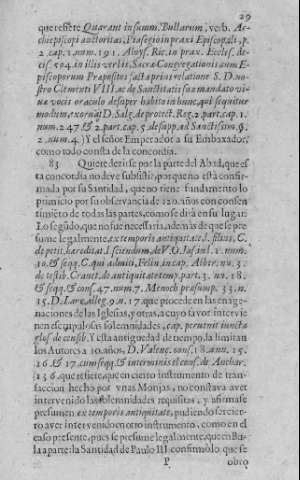 29
que refiere Quarant. in summ. Bullarum, verb. Ar-
chiepiscopi auctoritas, Piasegio in praxi Episcopali, p.
2. cap. 1. num. 191. Aloys. Ric. in prax. Eccles. de-
cis. 504. in illis verbis, Sacra Congregationi aum E-
piscoporum Propositos facta prius relatione S. D. no-
stro Clementi VIII. ac de Sanctitatis suæ mandato vi-
væ vocis oraculo desuper habito in hunc, qui sequitur
modum, D. Salg. de protect. Reg. 2. part. cap. 1.
num. 247. & 2. part. cap. 5. de supp. ad Sanctissim. §.
2. num. 4.) Y el señor Emperador a su Embaxador,
como todo consta de la concordia.
83 Quiere dezirse por la parte del Abad, que es
ta concordia no deve subsistir, por que no està confir-
mada por su Santidad, que no tiene fundamento lo
primero por su observancia de 120. años con consen-
timiẽto de todas las partes, como se dirà en su lugar.
Lo segũdo, que no fue necessaria, ademàs de que se pre
sume legalmente, ex temporis antiquitate, l. filius, C.
de petit. hæredita. l. sciendum, de V. O. inf. 1. num.
10. & seqq. C. qui admitt. Felin. in cap. Alber. nu. 3.
de testib. Cravet. de antiquitate temp. part. 3. nu. 18.
& seqq. & cons. 47. num. 7. Menoch. præsump. 33. n.
15. D. Lar. alleg. 9. n. 17. que procede en las enage-
naciones de las Iglesias, y otras, a cuyo favor intervie
nen escrupulosas solemnidades, cap. pervenit iuncta
glos. de censib. Y esta antiguedad de tiempo, la limitan
los Autores a 10. años, D. Valenc. cons. 18. num. 15.
16. & 17. cum seqq. & in terminis el cons. de Anchar.
136. que refiere, que en cierto instrumento de tran-
saccion hecho por vnas Monjas, no constava aver
intervenido las solemnidades requisitas, y afirma se
presumen ex temporis antiquitate, pudiendo ser cier-
to aver intervenido en otro instrumento, como en el
caso presente, pues se presume legalmente, que en Bu-
la aparte la Santidad de Paulo III. confirmò lo que se
P obrò